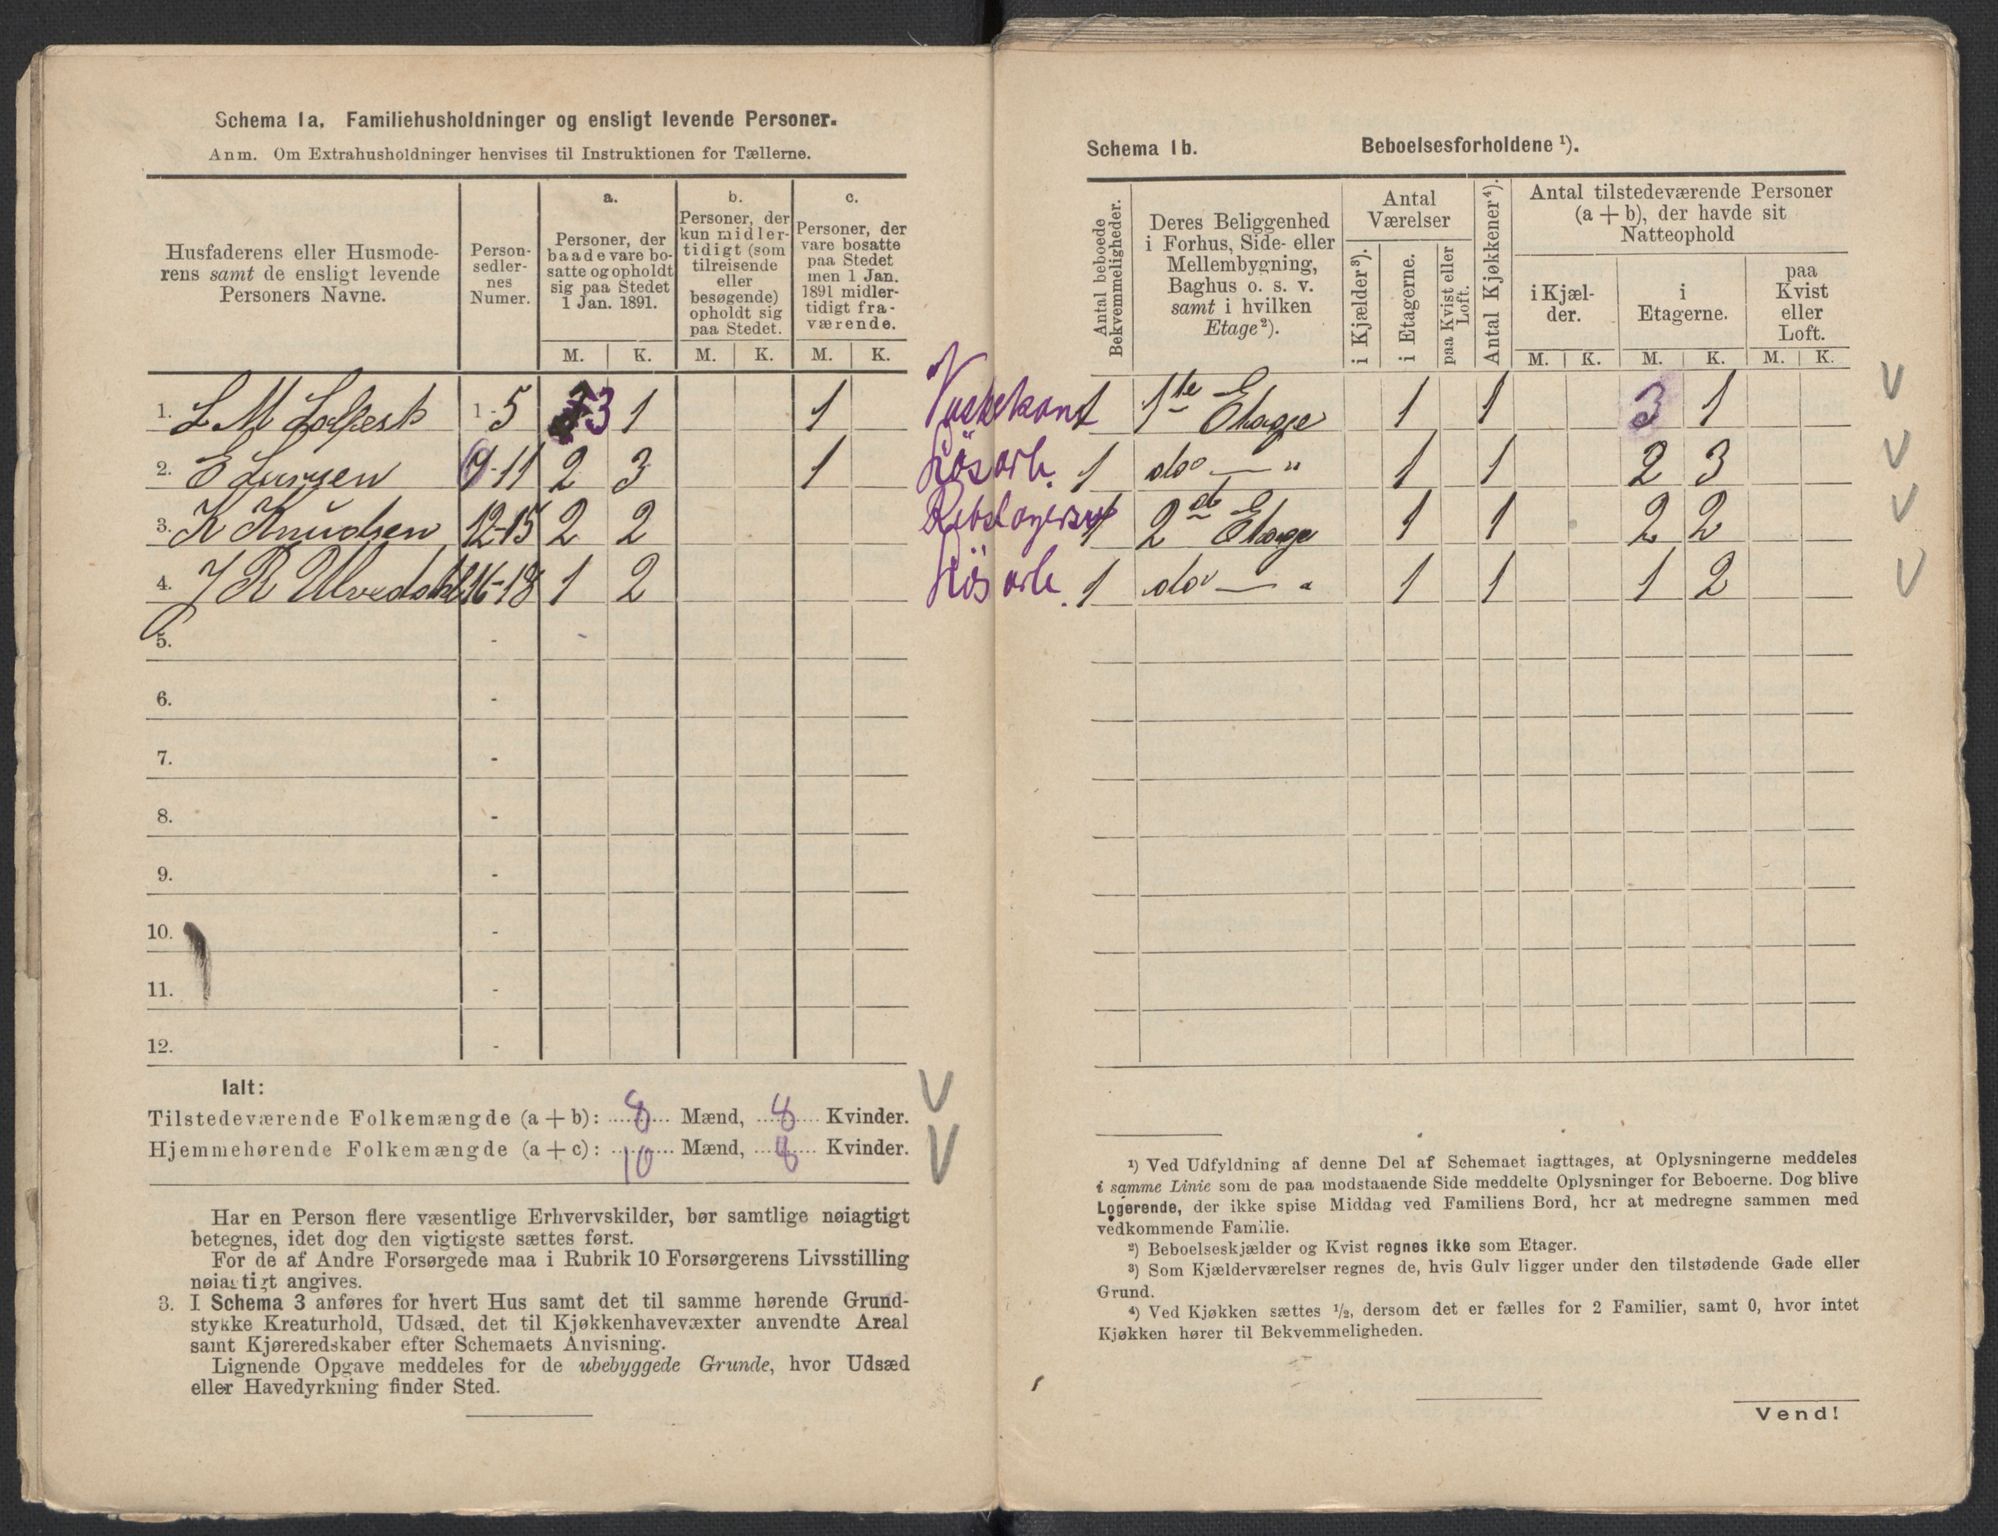 Schema 1a. Familiehusholdninger og ensligt levende Personer.
Anm. Om Extrahusholdninger henvises til Instruktionen for Tællerne.
Husfaderens eller Husmode-
rens samt de ensligt levende
Personers Navne.
Person-
sedler-
nes
Numer.
a.
Personer, der
baade vare bo-
satte og opholdt
sig paa Stedet
1 Jan. 1891.
b.
Personer, der
kun midler-
tidigt (som
tilreisende
eller
besøgende)
opholdt sig
paa Stedet.
c.
Personer, der
vare bosatte
paa Stedet
men 1 Jan.
1891 midler-
tidigt fra-
værende.
M. K. M. K. M. K.
1. L M 1-5 3 1 1
2. E 11 2 3 1
3. K Knudsen 12-15 2 2
4. J R Ulvedahl 16-18 1 2
5. -
6. -
7. -
8. -
9. -
10. -
11. -
12. -
Ialt:
Tilstedeværende Folkemængde (a + b): 8 Mænd, 8 Kvinder.
Hjemmehørende Folkemængde (a + c): 10 Mænd, 8 Kvinder.
Har en Person flere væsentlige Erhvervskilder, bør samtlige nøiagtigt
betegnes, idet dog den vigtigste sættes først.
For de af Andre Forsørgede maa i Rubrik 10 Forsørgerens Livsstilling
nøiagtigt angives.
3. I Schema 3 anføres for hvert Hus samt det til samme hørende Grund-
stykke Kreaturhold, Udsæd, det til Kjøkkenhavevæxter anvendte Areal
samt Kjøreredskaber efter Schemaets Anvisning.
Lignende Opgave meddeles for de ubebyggede Grunde, hvor Udsæd
eller Havedyrkning finder Sted.
Schema 1b. Beboelsesforholdene ¹).
Antal beboede
Bekvemmeligheder.
Deres Beliggenhed
i Forhus, Side- eller
Mellembygning,
Baghus o. s. v.
samt i hvilken
Etage ²).
Antal
Værelser
i Kjælder ³).
i Etagerne.
paa Kvist eller
Loft.
Antal Kjøkkener ⁴).
Antal tilstedeværende Personer
(a + b), der havde sit
Natteophold
i Kjæl-
der.
i
Etagerne.
paa
Kvist
eller
Loft.
M. K. M. K. M. K.
1 1te Etage 1 1 3 1
Løsarb. 1 do — " 1 1 2 3
1 2den Etage 1 1 2 2
Løsarb. 1 do — " 1 1 1 2
¹) Ved Udfyldning af denne Del af Schemaet iagttages, at Oplysningerne meddeles
i samme Linie som de paa modstaaende Side meddelte Oplysninger for Beboerne. Dog blive
Logerende, der ikke spise Middag ved Familiens Bord, her at medregne sammen med
vedkommende Familie.
²) Beboelseskjælder og Kvist regnes ikke som Etager.
³) Som Kjælderværelser regnes de, hvis Gulv ligger under den tilstødende Gade eller
Grund.
⁴) Ved Kjøkken sættes ½, dersom det er fælles for 2 Familier, samt 0, hvor intet
Kjøkken hører til Bekvemmeligheden.
Vend!